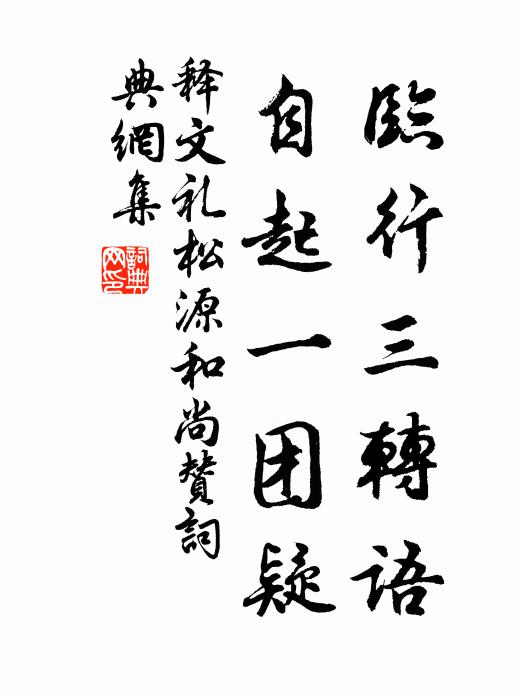 臨行三轉語
自起一团疑
释文礼松源和尚贊詞
典網集
詞典
网印